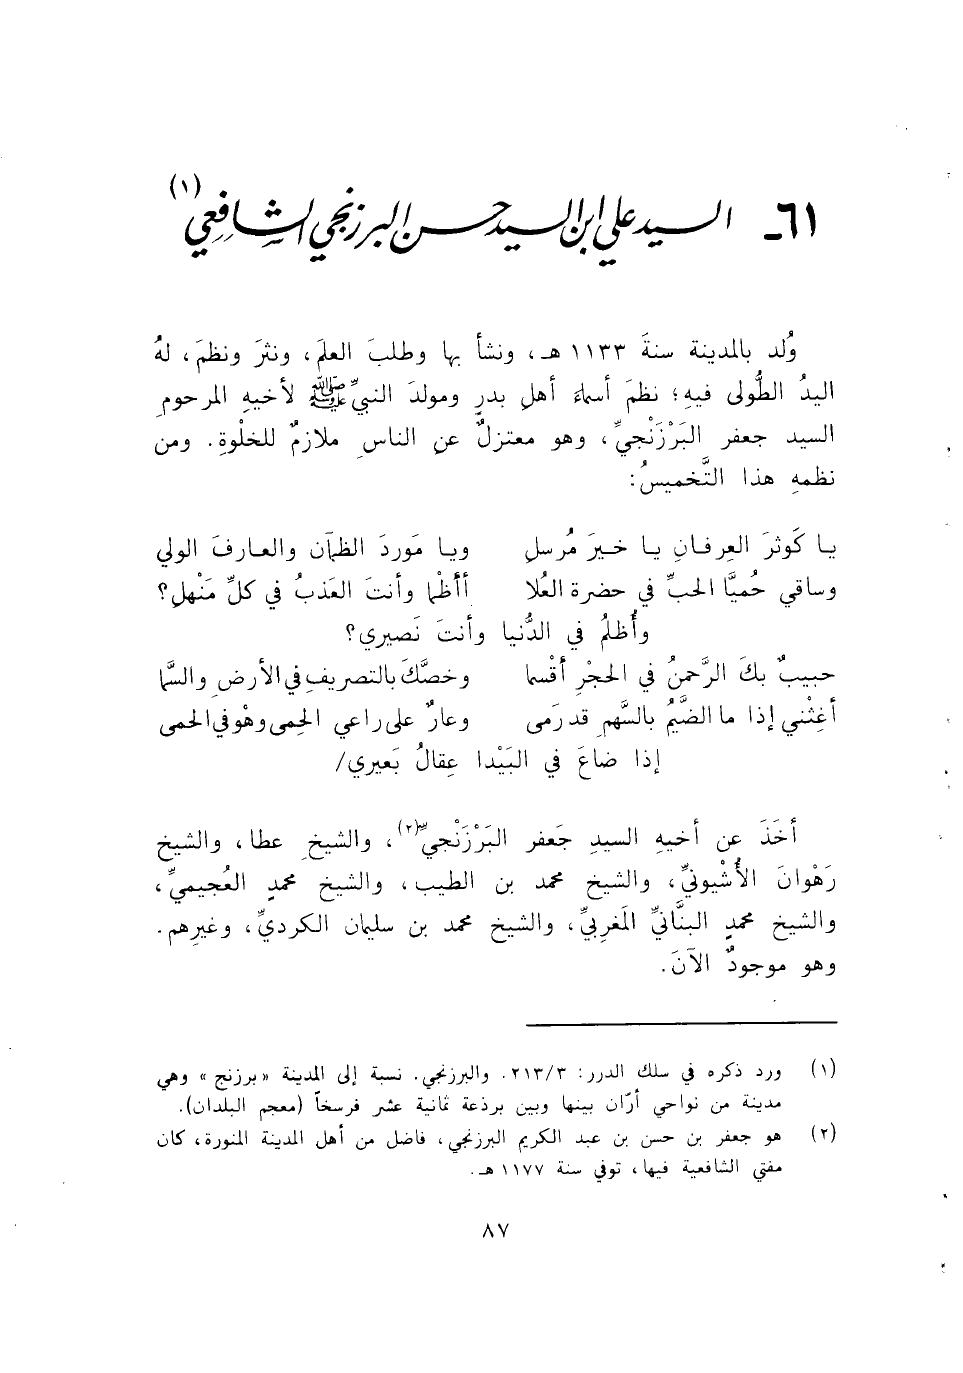 ٦١ـ السيد علي ابن السيد حسن البرزنجي الشافعي (١)
وُلد بالمدينة سنةَ ١١٣٣ هـ، ونشأ بها وطلبَ العلمَ، ونثرَ ونظمَ، لهُ
اليدُ الطُّولى فيهِ؛ نظمَ أسماءَ أهلِ بدرٍ ومولدَ النبيِّ ﷺ لأخيهِ المرحومِ
السيد جعفر البَرْزَنْجيِّ، وهو معتزلٌ عنِ الناسِ ملازمٌ للخلْوةِ. ومن
نظمهِ هذا التَّخميسُ:
يا كَوثرَ العِرفانِ يا خيرَ مُرسلِ ويا مَوردَ الظمآن والعارفَ الولي
وساقي حُميَّا الحبِّ في حضرة العُلا أأظْما وأنتَ العَذبُ في كلِّ مَنْهلِ؟
وأُظلمُ في الدُّنيا وأنتَ نَصيري؟
حبيبٌ بكَ الرَّحمنُ في الحجْرِ أقْسما وخصَّكَ بالتصريفِ في الأرضِ والسَّما
أغِثْني إذا ما الضَّيمُ بالسَّهمِ قد رَمى وعارٌ على راعي الحِمى وهْو في الحمى
إذا ضاعَ في البَيْدا عِقالُ بَعيري/
أخَذَ عن أخيهِ السيدِ جَعفر البَرْزَنْجيِّ(٢)، والشيخِ عطا، والشيخ
رَهْوانَ الأُشيونيِّ، والشيخ محمد بن الطيب، والشيخ محمدٍ العُجيميِّ،
والشيخ محمدٍ البنَّانيِّ المَغربيِّ، والشيخ محمد بن سليمان الكرديِّ، وغيرِهم.
وهو موجودٌ الآنَ.
(١) ورد ذكره في سلك الدرر: ٢١٣/٣. والبرزنجي. نسبة إلى المدينة «برزنج» وهي
مدينة من نواحي أرّان بينها وبين برذعة ثمانية عشر فرسخاً (معجم البلدان).
(٢) هو جعفر بن حسن بن عبد الكريم البرزنجي، فاضل من أهل المدينة المنورة، كان
مفتي الشافعية فيها، توفي سنة ١١٧٧ هـ.
٨٧